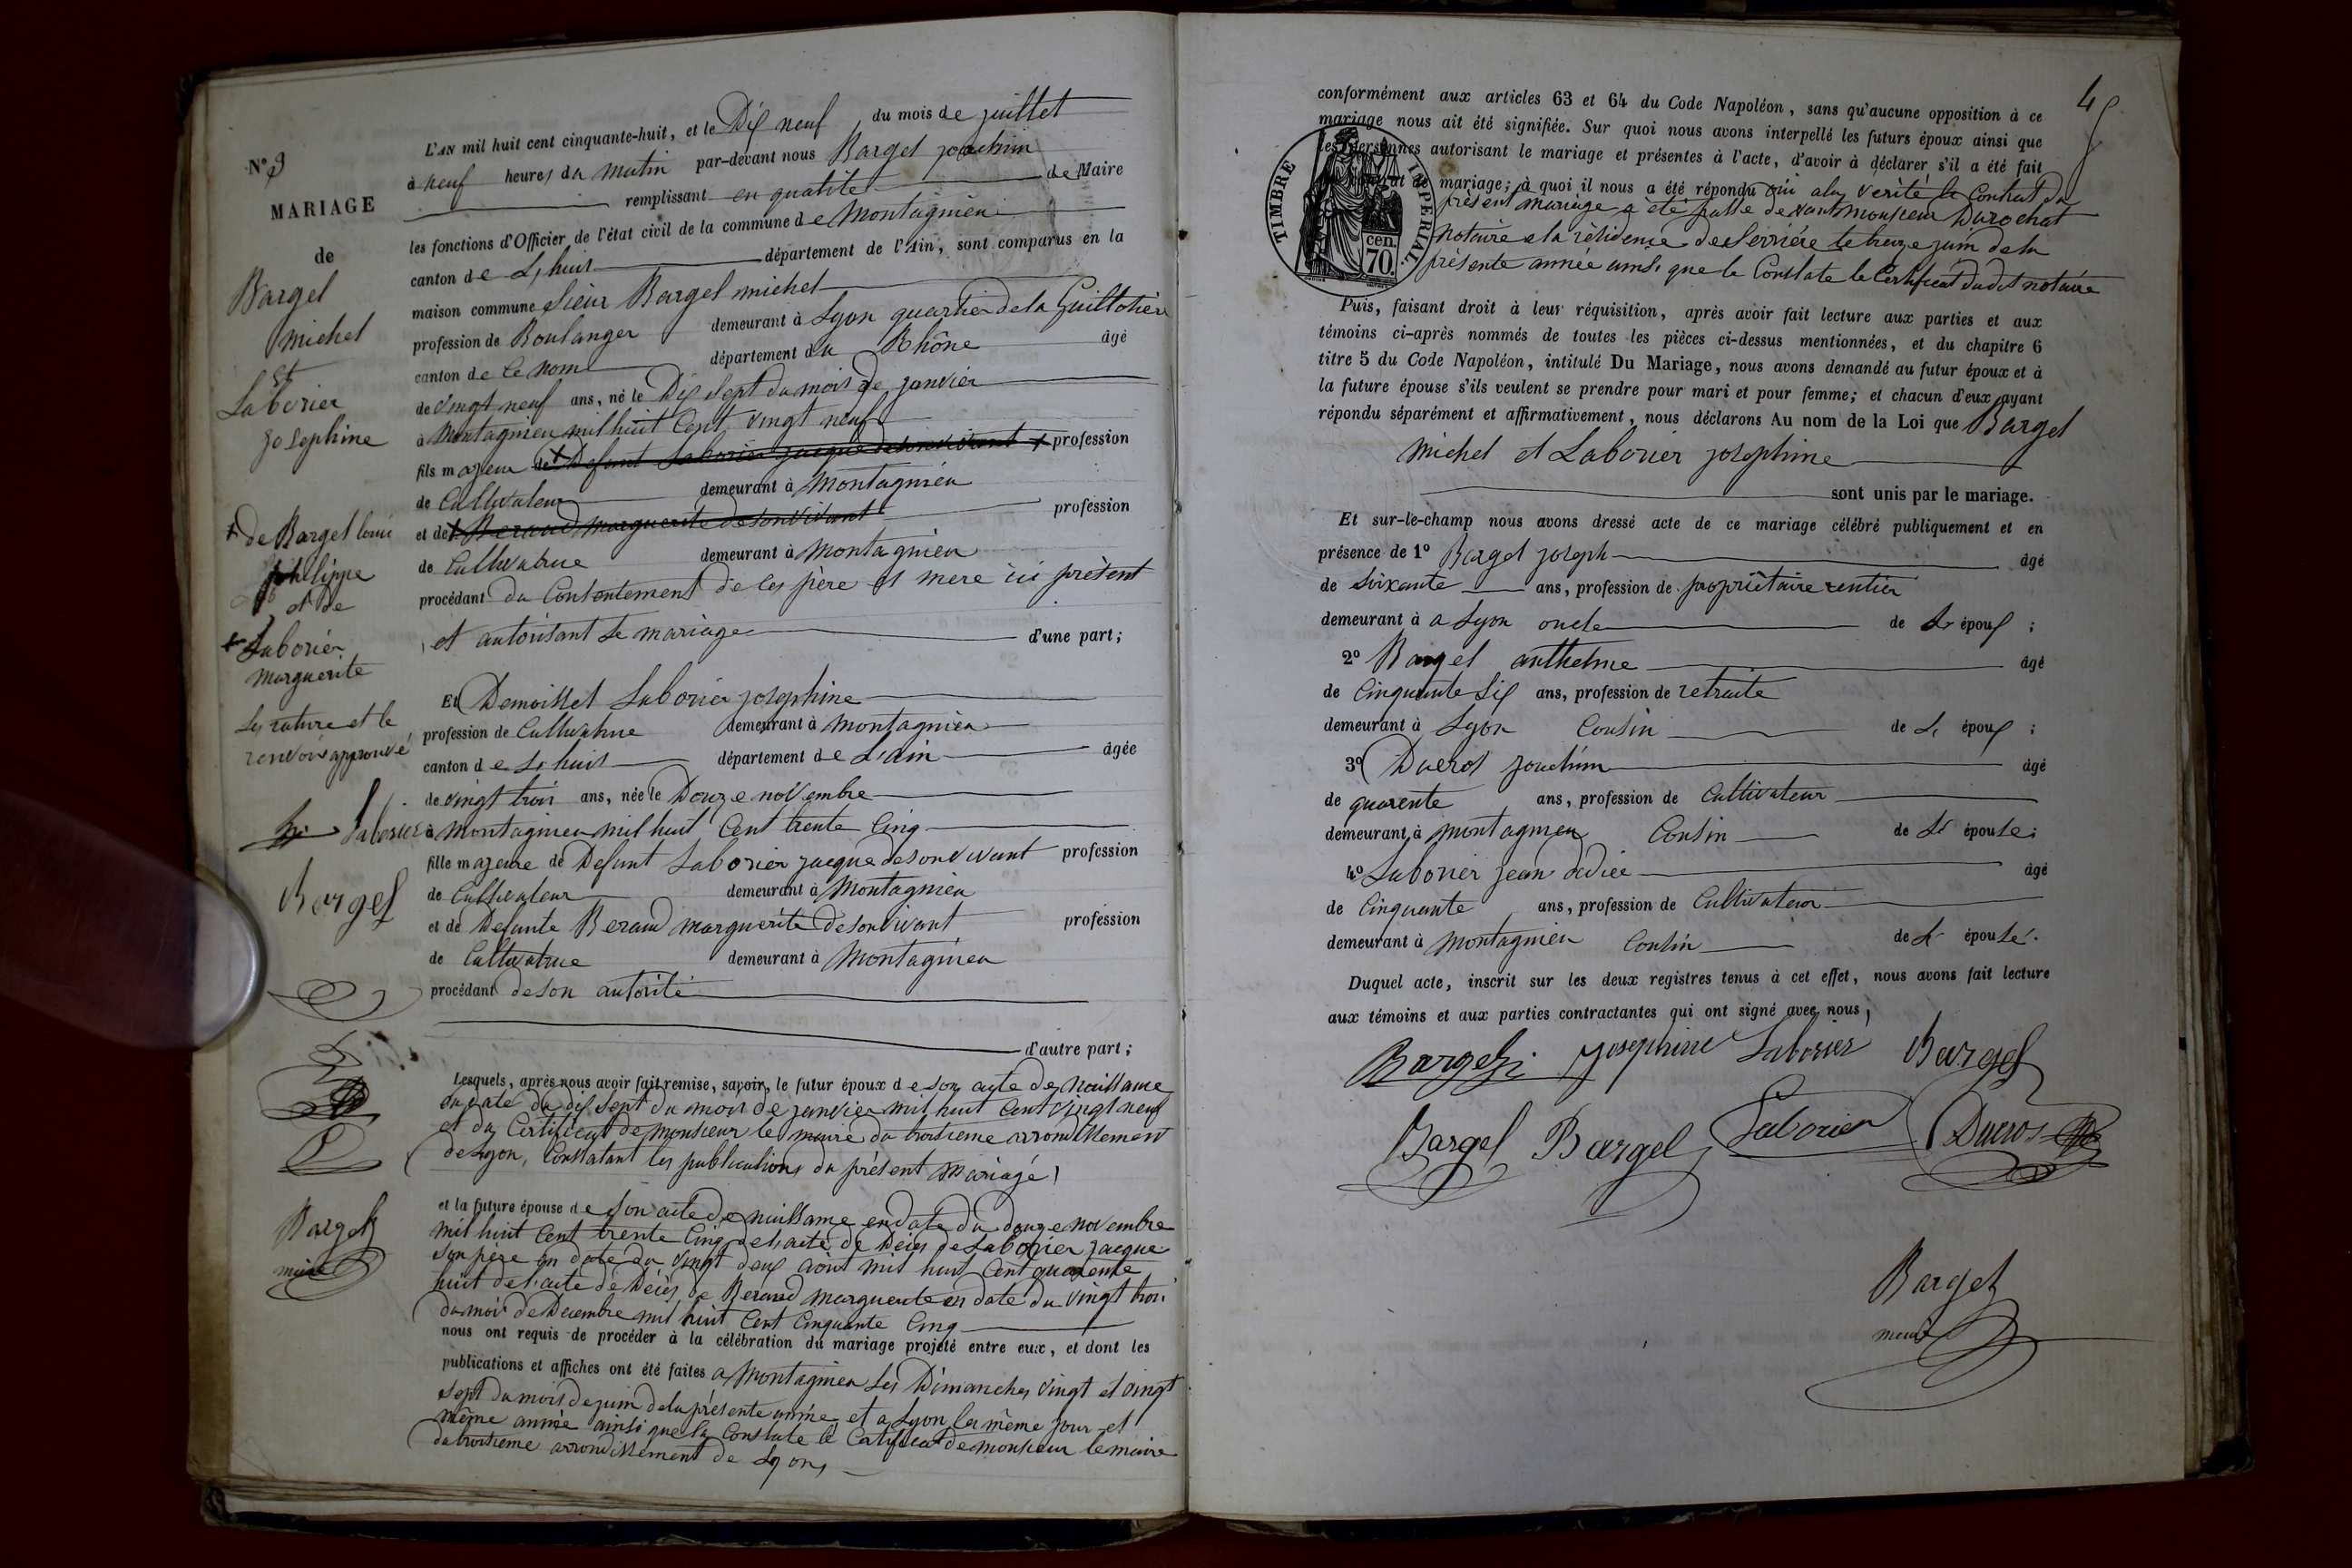 N° 9
MARIAGE
de
Bargel
michel
et
Laborier
josephine
+ de Bargel loui
philippe
et de
+ Laborier
marguerite
Les rature et le
renvois approuvé
Laborier
Bargel
Bargel
maire
L'AN mil huit cent cinquante-huit, et le Dix neuf du mois de juillet
à neuf heures du matin par-devant nous Bargel joachim
remplissant en qualité de Maire
les fonctions d'Officier de l'état civil de la commune de Montagnieu
canton de Lhuis département de l'Ain, sont comparus en la
maison commune Sieur Bargel michel
profession de Boulanger demeurant à Lyon quartier de la Guillotière
canton de ce nom département du Rhône âgé
de vingt neuf ans, né le Dix sept du mois de janvier
à Montagnieu mil huit Cent vingt neuf
fils majeur de + Defunt Laborier jacque de son vivant + profession
de Cultivateur demeurant à Montagnieu
et de + Beraud marguerite de son vivant profession
de Cultivatrice demeurant à Montagnieu
procédant du Consentement de ces père et mere ici présent
et autorisant le mariage d'une part;
Et Demoissel Laborier josephine
profession de Cultivatrice demeurant à Montagnieu
canton de Lhuis département de L'ain âgée
de vingt trois ans, née le Douze novembre
à Montagnieu mil huit Cent trente Cinq
fille majeure de Defunt Laborier jacque de son vivant profession
de Cultivateur demeurant à Montagnieu
et de Defunte Beraud marguerite de son vivant profession
de Cultivatrice demeurant à Montagnieu
procédant de son autorité
d'autre part;
Lesquels, après nous avoir fait remise, savoir, le futur époux de son acte de naissance
en date du dix sept du mois de janvier mil huit Cent vingt neuf
et du Certificat de monsieur le maire du troisieme arrondissement
de Lyon, Constatant les publications du présent mariage
et la future épouse de son acte de naissance en date du douze novembre
mil huit Cent trente Cinq de l'acte de Déces de Laborier jacque
son père en date du vingt deux août mil huit Cent quarente
huit de l'acte de Déces de Beraud marguerite en date du vingt trois
du mois de Decembre mil huit Cent Cinquante Cinq
nous ont requis de procéder à la célébration du mariage projeté entre eux, et dont les
publications et affiches ont été faites a Montagnieu Les Dimanches vingt et vingt
sept du mois de juin de la présente année et a Lyon les même jour et
même année ainsi que la Constate le Certificat de monsieur le maire
du troisieme arrondissement de Lyon,
conformément aux articles 63 et 64 du Code Napoléon, sans qu'aucune opposition à ce
mariage nous ait été signifiée. Sur quoi nous avons interpellé les futurs époux ainsi que
les personnes autorisant le mariage et présentes à l'acte, d'avoir à déclarer s'il a été fait
de mariage; à quoi il nous a été répondu oui a la verité le Contrat du
présent mariage a été passé devant monsieur Durochat
notaire a la résidence de Serrière le treize juin de la
présente année ainsi que le Constate le Certificat dudit notaire
TIMBRE IMPERIAL.
cen.
70.
Puis, faisant droit à leur réquisition, après avoir fait lecture aux parties et aux
témoins ci-après nommés de toutes les pièces ci-dessus mentionnées, et du chapitre 6
titre 5 du Code Napoléon, intitulé Du Mariage, nous avons demandé au futur époux et à
la future épouse s'ils veulent se prendre pour mari et pour femme; et chacun d'eux ayant
répondu séparément et affirmativement, nous déclarons Au nom de la Loi que Bargel
michel et Laborier josephine
sont unis par le mariage.
Et sur-le-champ nous avons dressé acte de ce mariage célébré publiquement et en
présence de 1° Bargel joseph âgé
de soixante ans, profession de propriétaire rentier
demeurant à a Lyon oncle de L' époux ;
2° Bargel anthelme âgé
de Cinquante Six ans, profession de retraite
demeurant à Lyon Cousin de L' époux ;
3° Ducros joachim âgé
de quarente ans, profession de Cultivateur
demeurant à Montagnieu Cousin de L' épouse;
4° Laborier jean âgé
de Cinquante ans, profession de Cultivateur
demeurant à Montagnieu Cousin de L' épouse.
Duquel acte, inscrit sur les deux registres tenus à cet effet, nous avons fait lecture
aux témoins et aux parties contractantes qui ont signé avec nous,
Bargel Josephine Laborier Bargel
Bargel Bargel Laborier Ducros
Bargel
maire